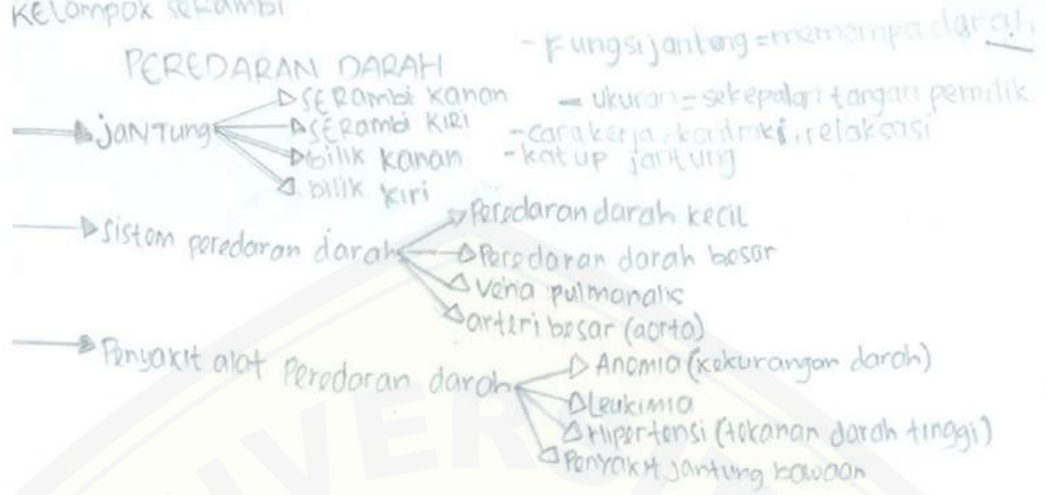 Kelompok serambi
PEREDARAN DARAH
- Fungsi jantung = memompa darah
JANTung
SERambi kanan
- ukuran = sekepalan tangan pemilik
SERambi KIRI
- cara kerja = kontraksi, relaksasi
bilik kanan
- katup jantung
bilik kiri
Sistem peredaran darah
Peredaran darah kecil
Peredaran darah besar
Vena pulmonalis
arteri besar (aorta)
Penyakit alat Peredaran darah
Anemia (kekurangan darah)
Leukimia
Hipertensi (tekanan darah tinggi)
Penyakit jantung bawaan
UNIVERSI